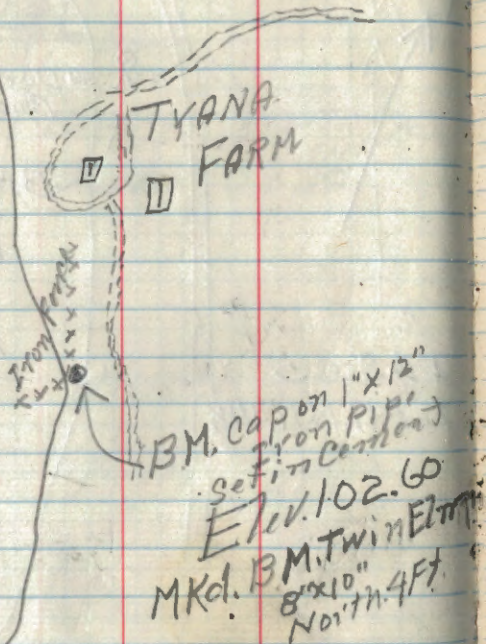 TYANA
FARM
Iron Fence
B.M. Cap on 1" x 12"
Iron Pipe
Set in Cement
Elev. 102.60
MKd. B.M. Twin Elms
8"x10"
North. 4 Ft.